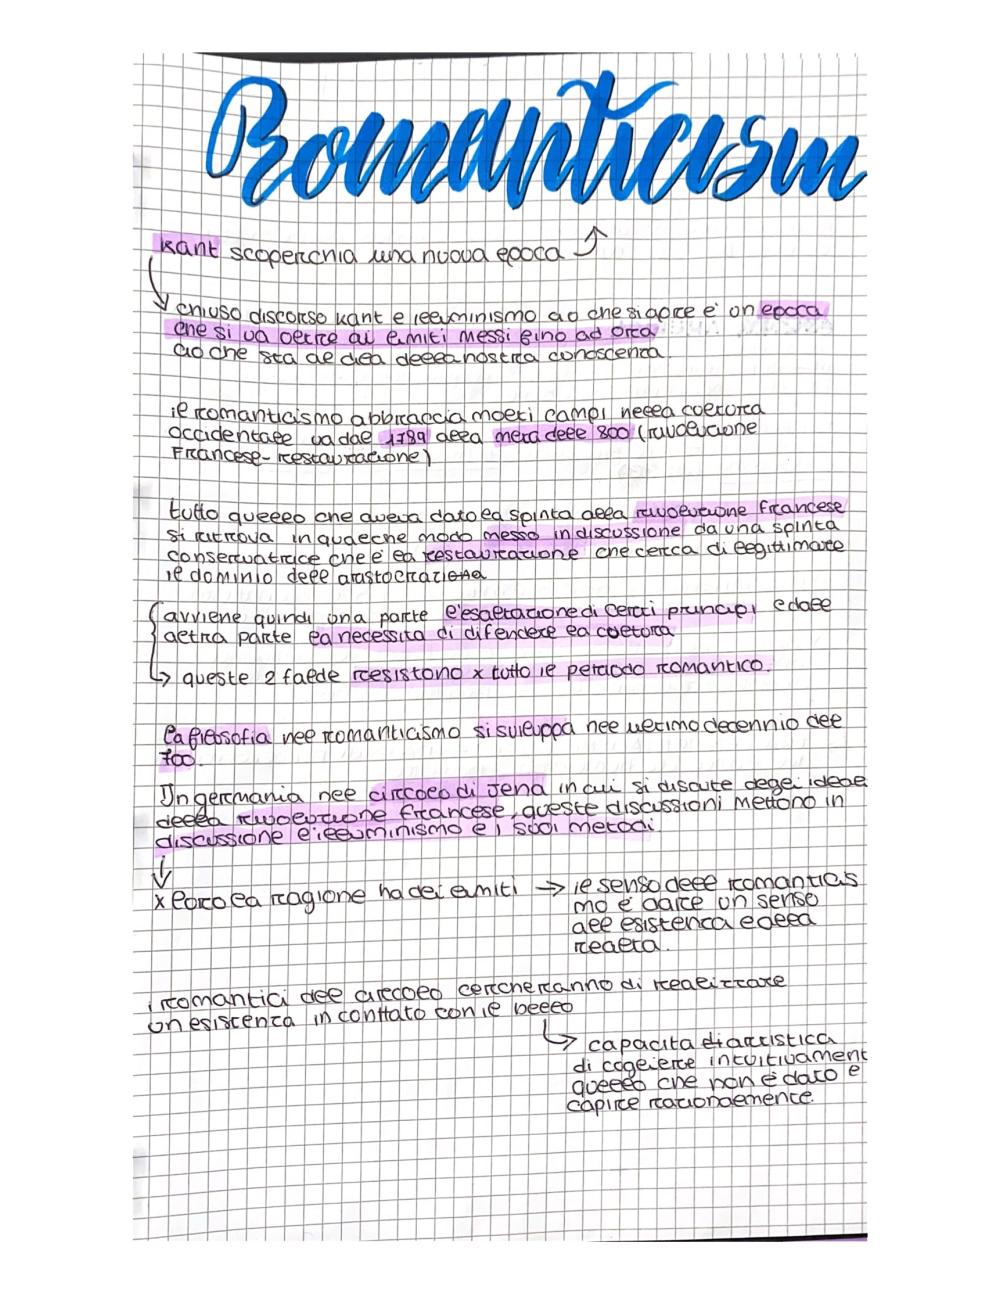 Romanticism
Kant scoperchia una nuova epoca
chiuso discorso Kant e illuminismo ciò che si apre è un epoca
che si va oltre ai limiti messi fino ad ora
ciò che sta al di là della nostra conoscenza.
il romanticismo abbraccia molti campi nella coltura
occidentale va dal 1789 alla metà dell 800 (rivoluzione
Francese - restaurazione)
tutto quello che aveva dato la spinta alla rivoluzione francese
si ritrova in qualche modo messo in discussione da una spinta
conservatrice che è la restaurazione che cerca di legittimare
il dominio dell aristocrazia
avviene quindi una parte l'esaltazione di certi principi e dall
altra parte la necessità di difendere la coltura
queste 2 falde resistono x tutto il periodo romantico.
la filosofia nel romanticismo si sviluppa nel ultimo decennio del
700.
In germania nel circolo di Jena in cui si discute degli ideali
della rivoluzione francese, queste discussioni mettono in
discussione l'illuminismo e i suoi metodi
x loro la ragione ha dei limiti → il senso dell romanticis
mo è dare un senso
all esistenza e alla
realtà.
i romantici del circolo cercheranno di realizzare
un esistenza in conttato con il bello
capacità di artistica
di cogliere intuitivament
quello che non è dato e
capire razionalmente.